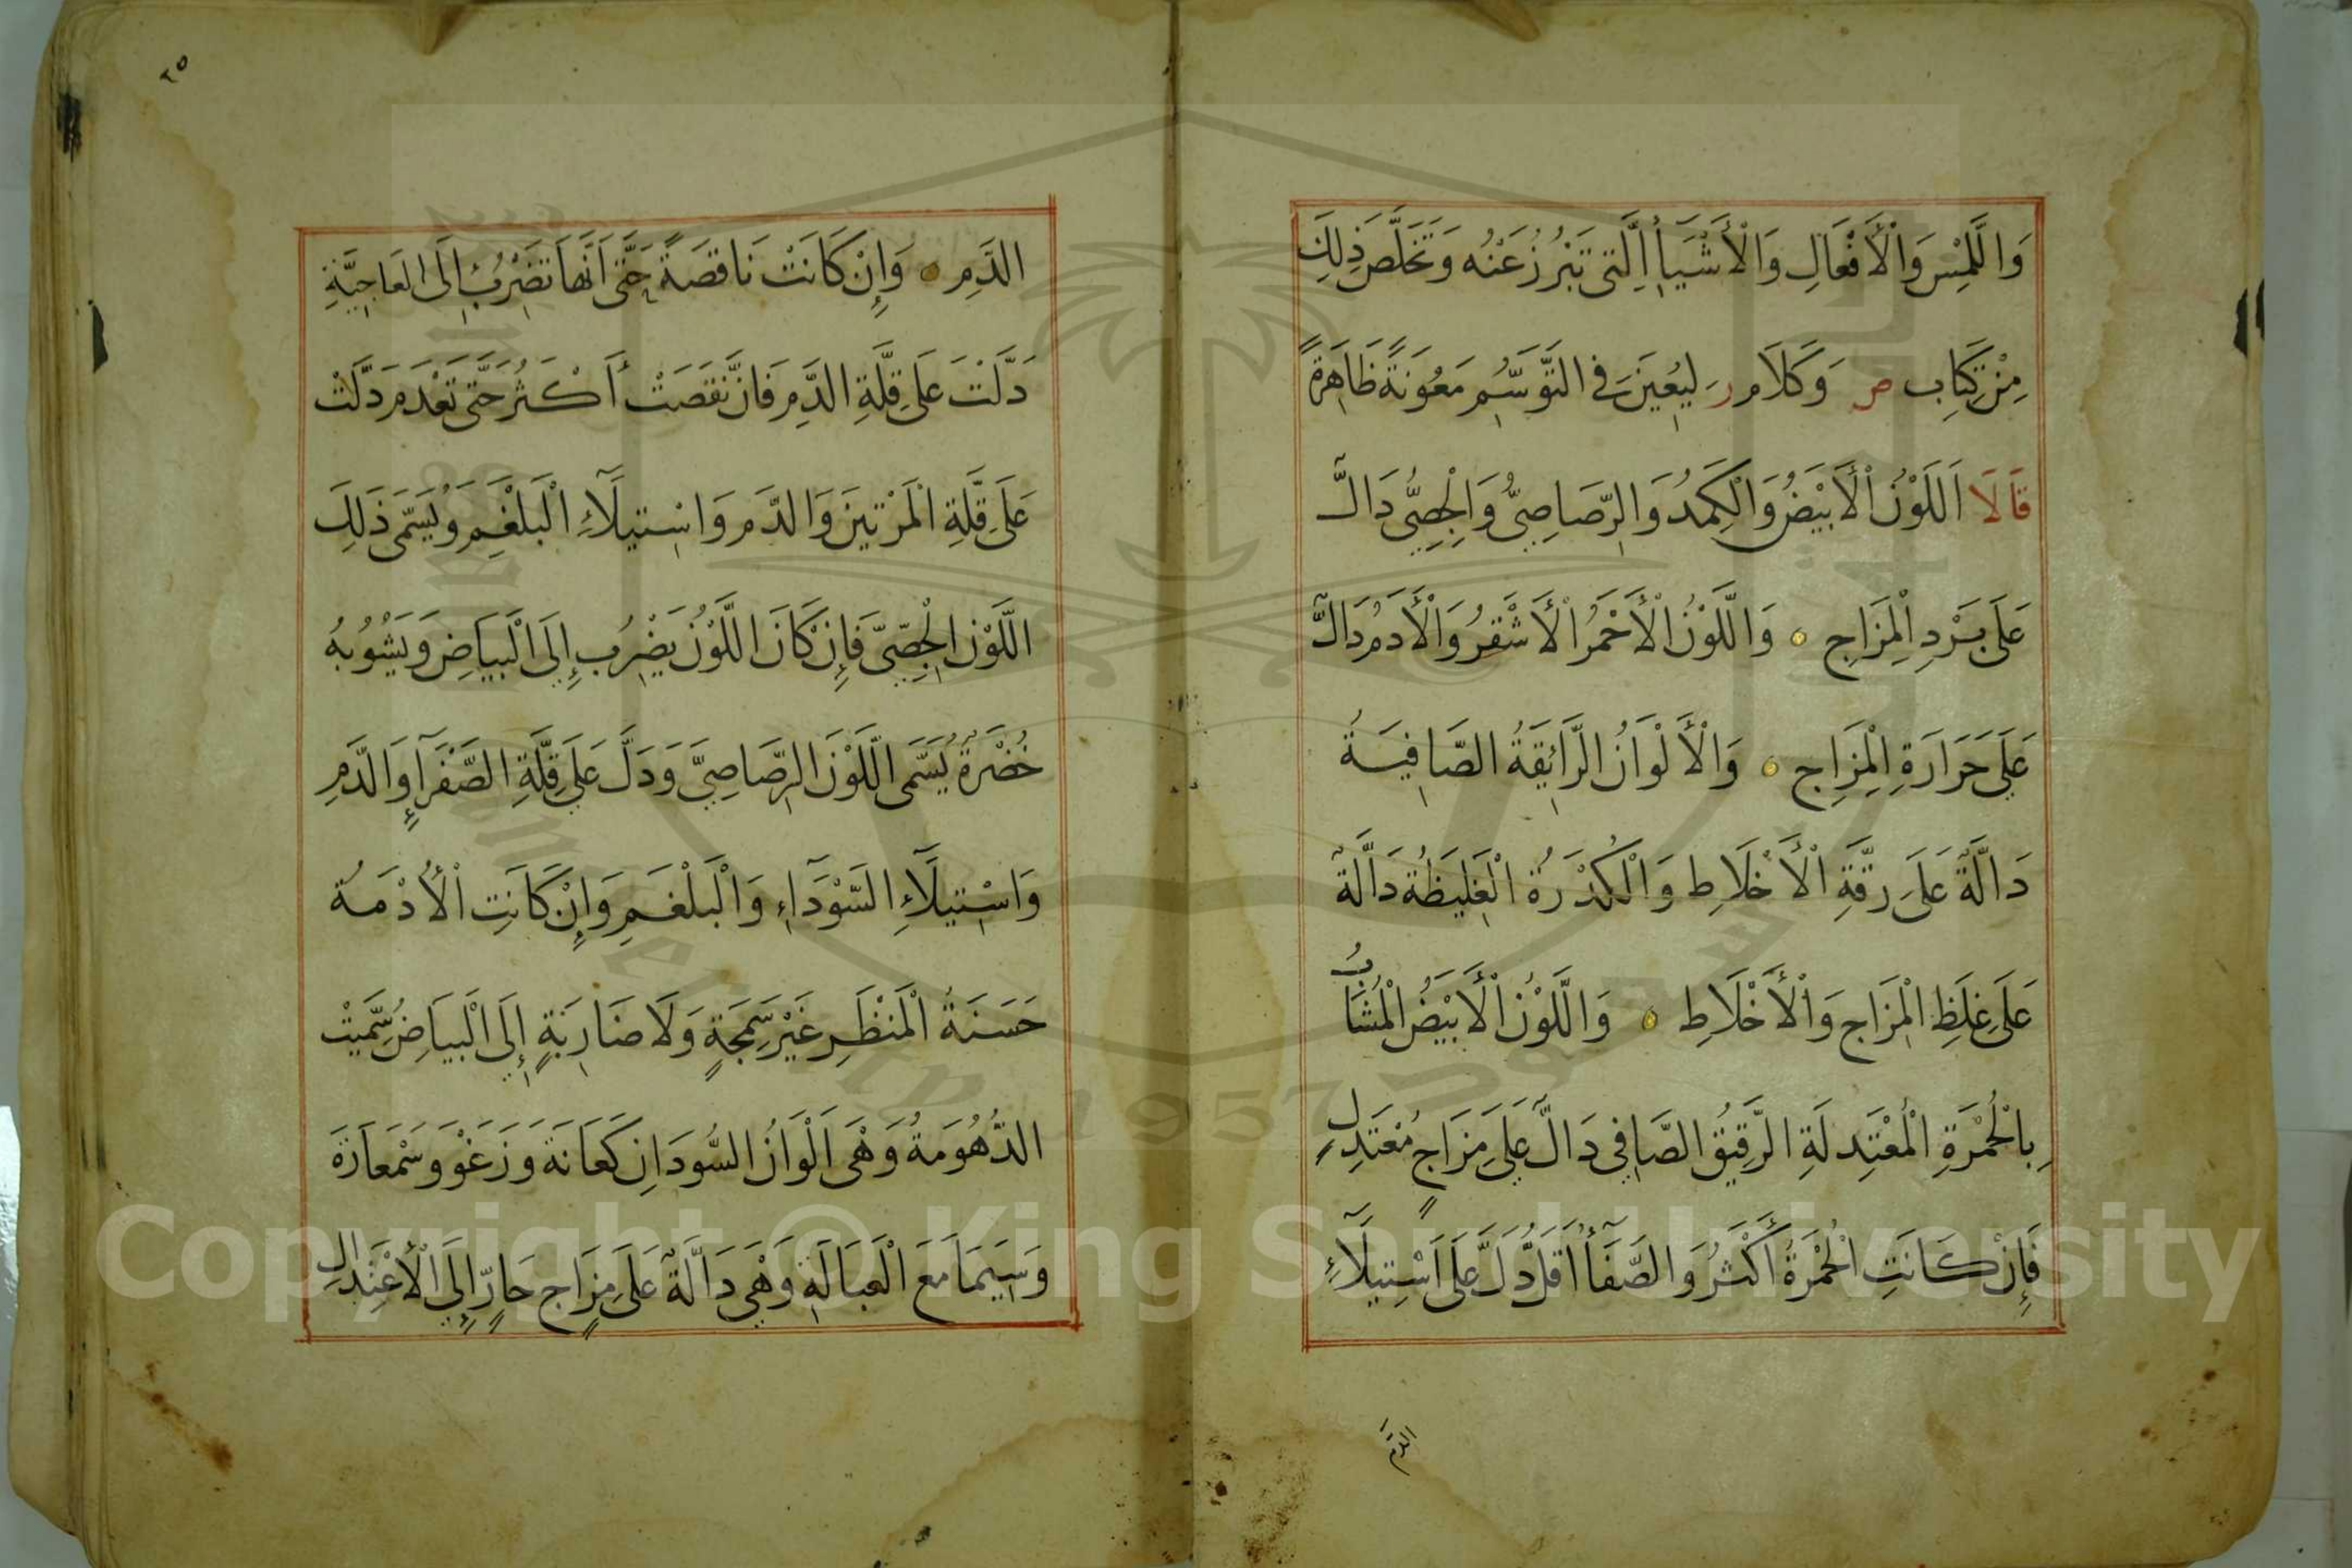 وَاللَّمْسِ وَالْأَفْعَالِ وَالْأَشْيَأِ الَّتِى تَبْرُزُ عَنْهُ وَتَخَلَّصَ ذٰلِكَ
مِنْ كِتَابِ ص وَكَلَامِ ر لِيُعِينَ فِى التَّوَسُّمِ مَعُونَةً ظَاهِرَةً
قَالَا اَللَّوْنُ الْأَبْيَضُ وَالْكَمِدُ وَالرَّصَاصِيُّ وَالْجِصِّىُّ دَالٌّ
عَلَى بَرْدِ الْمِزَاجِ ۞ وَاللَّوْنُ الْأَحْمَرُ الْأَشْقَرُ وَالْأَدَمُ دَالٌّ
عَلَي حَرَارَةِ الْمِزَاجِ ۞ وَالْأَلْوَانُ الرَّائِقَةُ الصَّافِيَةُ
دَالَّةٌ عَلَى رِقَّةِ الْأَخْلَاطِ وَالْكُدْرَةُ الْغَلِيظَةُ دَالَّةٌ
عَلَى غِلَظِ الْمِزَاجِ وَالْأَخْلَاطِ ۞ وَاللَّوْنُ الْأَبْيَضُ الْمُشَابُ
بِالْحُمْرَةِ الْمُعْتَدِلَةِ الرَّقِيقُ الصَّافِي دَالٌّ عَلَي مِزَاجٍ مُعْتَدِلٍ
فَإِنْ كَانَتِ الْحُمْرَةُ أَكْثَرُ وَالصَّفَأُ أَقَلُّ دَلَّ عَلَى اَسْتِيلَآءِ
الدم
٢٥
الدَّمِ ۞ وَإِنْ كَانَتْ نَاقِصَةً حَتَّى اَنَّهَا تَضْرُبُ اِلَى الْعَاجِيَّةِ
دَلَّتْ عَلَى قِلَّةِ الدَّمِ فَاِنْ نَقَصَتْ أَكْثَرُ حَتَّى تَعْدَمَ دَلَّتْ
عَلَى قِلَّةِ الْمَرَّتَيْنِ وَالدَّمِ وَاسْتِيلَآءِ الْبَلْغَمِ وَيُسَمَّى ذٰلِكَ
اللَّوْنُ الْجِصِّىَّ فَإِنْ كَانَ اللَّوْنُ يَضْرِبُ إِلَى الْبَيَاضِ وَيَشُوبُهُ
خُضْرَةٌ يُسَمَّى اللَّوْنَ الرَّصَاصِيَّ وَدَلَّ عَلَي قِلَّةِ الصَّفْرَآءِ وَالدَّمِ
وَاسْتِيلَآءِ السَّوْدَآءِ وَالْبَلْغَمِ وَإِنْ كَانَتِ الْأُدْمَةُ
حَسَنَةُ الْمَنْظَرِ غَيْرَ سَمِجَةٍ وَلَا ضَارِبَةٍ إِلَي الْبَيَاضِ سُمِّيَتْ
الدُّهُومَةُ وَهْىَ اَلْوَانُ السُّودَانِ كَعَانَةَ وَزَغْوَ وَسَمْعَارَةَ
وَسِيَمَا مَعَ الْعَبَالَةِ وَهْيَ دَالَّةٌ عَلَى مِزَاجٍ حَارٍّ إِلَي الْأَعْتِدَالِ
Copyright © King Saud University
1957